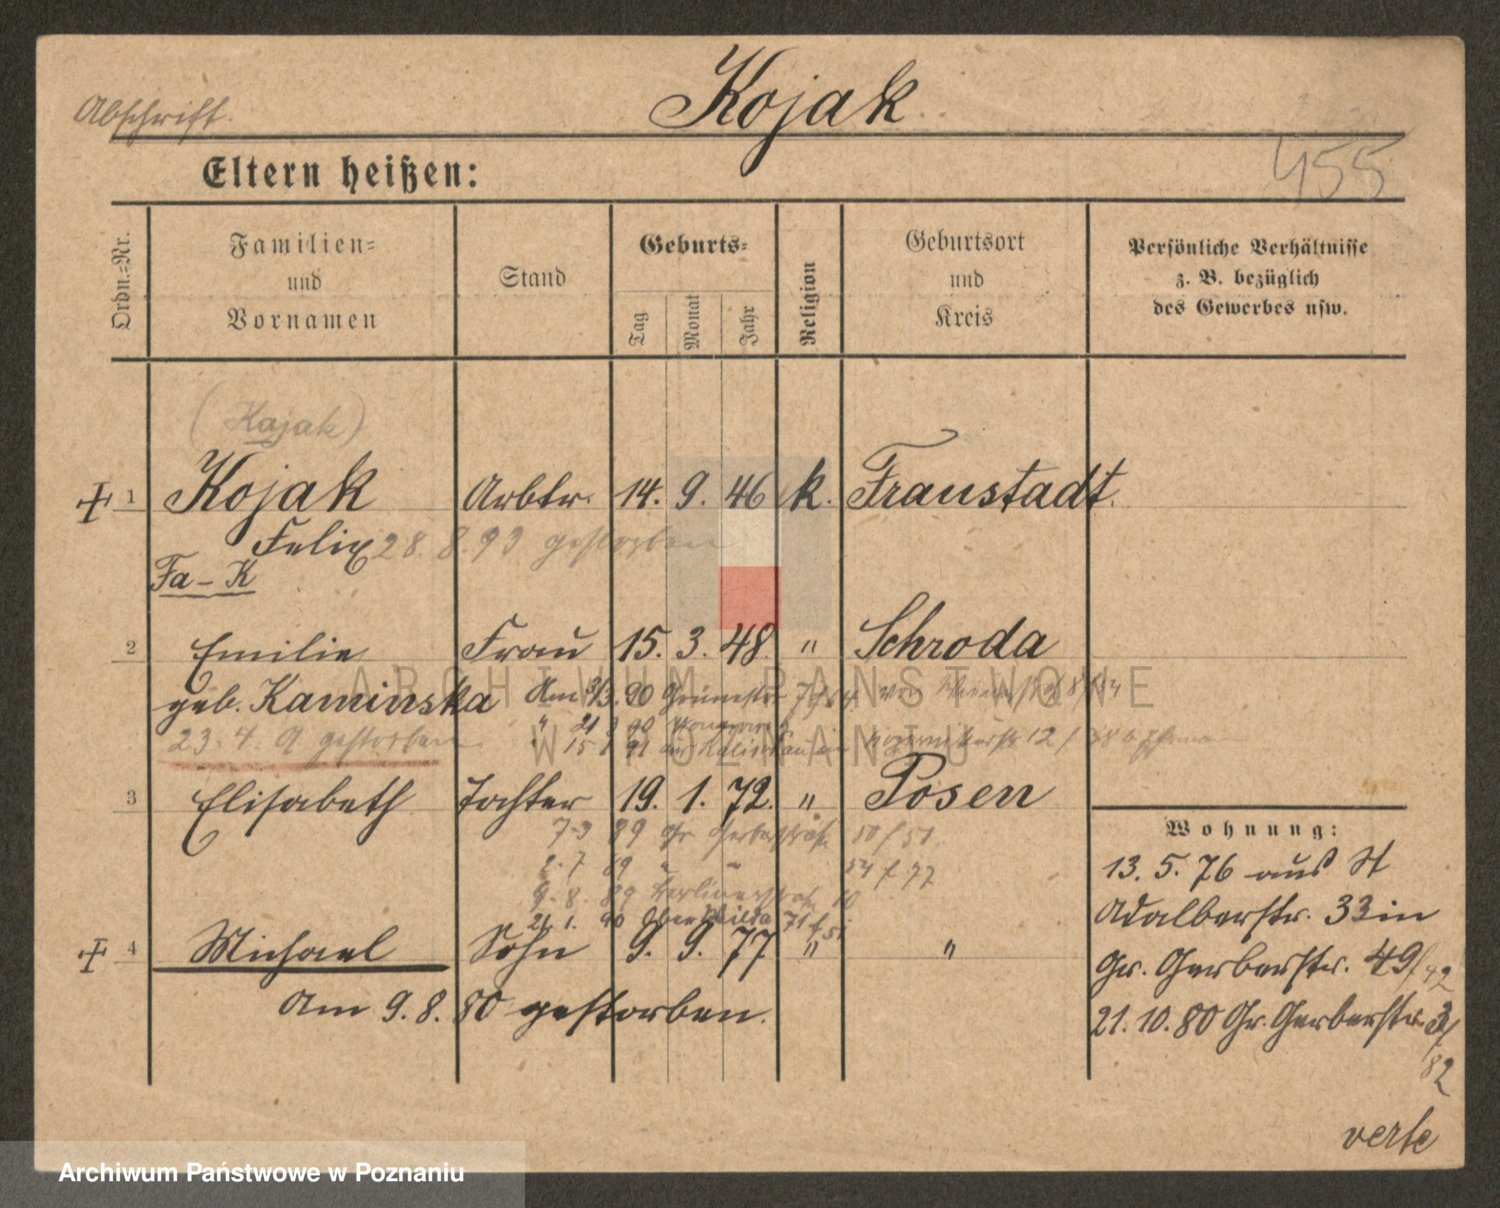 Abschrift.
Kojak
455
Eltern heißen:
Ordn.-Nr.
Familien-
und
Vornamen
Stand
Geburts-
Tag
Monat
Jahr
Religion
Geburtsort
und
Kreis
Persönliche Verhältnisse
z. B. bezüglich
des Gewerbes usw.
(Kajak)
1 Kojak Arbtr. 14. 9. 46 k. Fraustadt.
Felix 28. 8. 93 gestorben
Fa - K
2 Emilie Frau 15. 3. 48 " Schroda
geb. Kaminska
23. 4. gestorben
3 Elisabeth Tochter 19. 1. 72. " Posen
89 Gr Gerberstraße
9. 8. 89 Berlinerstraße 10
21. 1. 90 Ober Wilda
4 Michael Sohn 9. 9. 77 " "
Am 9. 8. 80 gestorben.
Wohnung:
13. 5. 76 aus St
Adalberstr. 33 in
Gr. Gerberstr. 49/
21. 10. 80 Gr. Gerberstr.
82
verte
ARCHIWUM PAŃSTWOWE
W POZNANIU
Archiwum Państwowe w Poznaniu